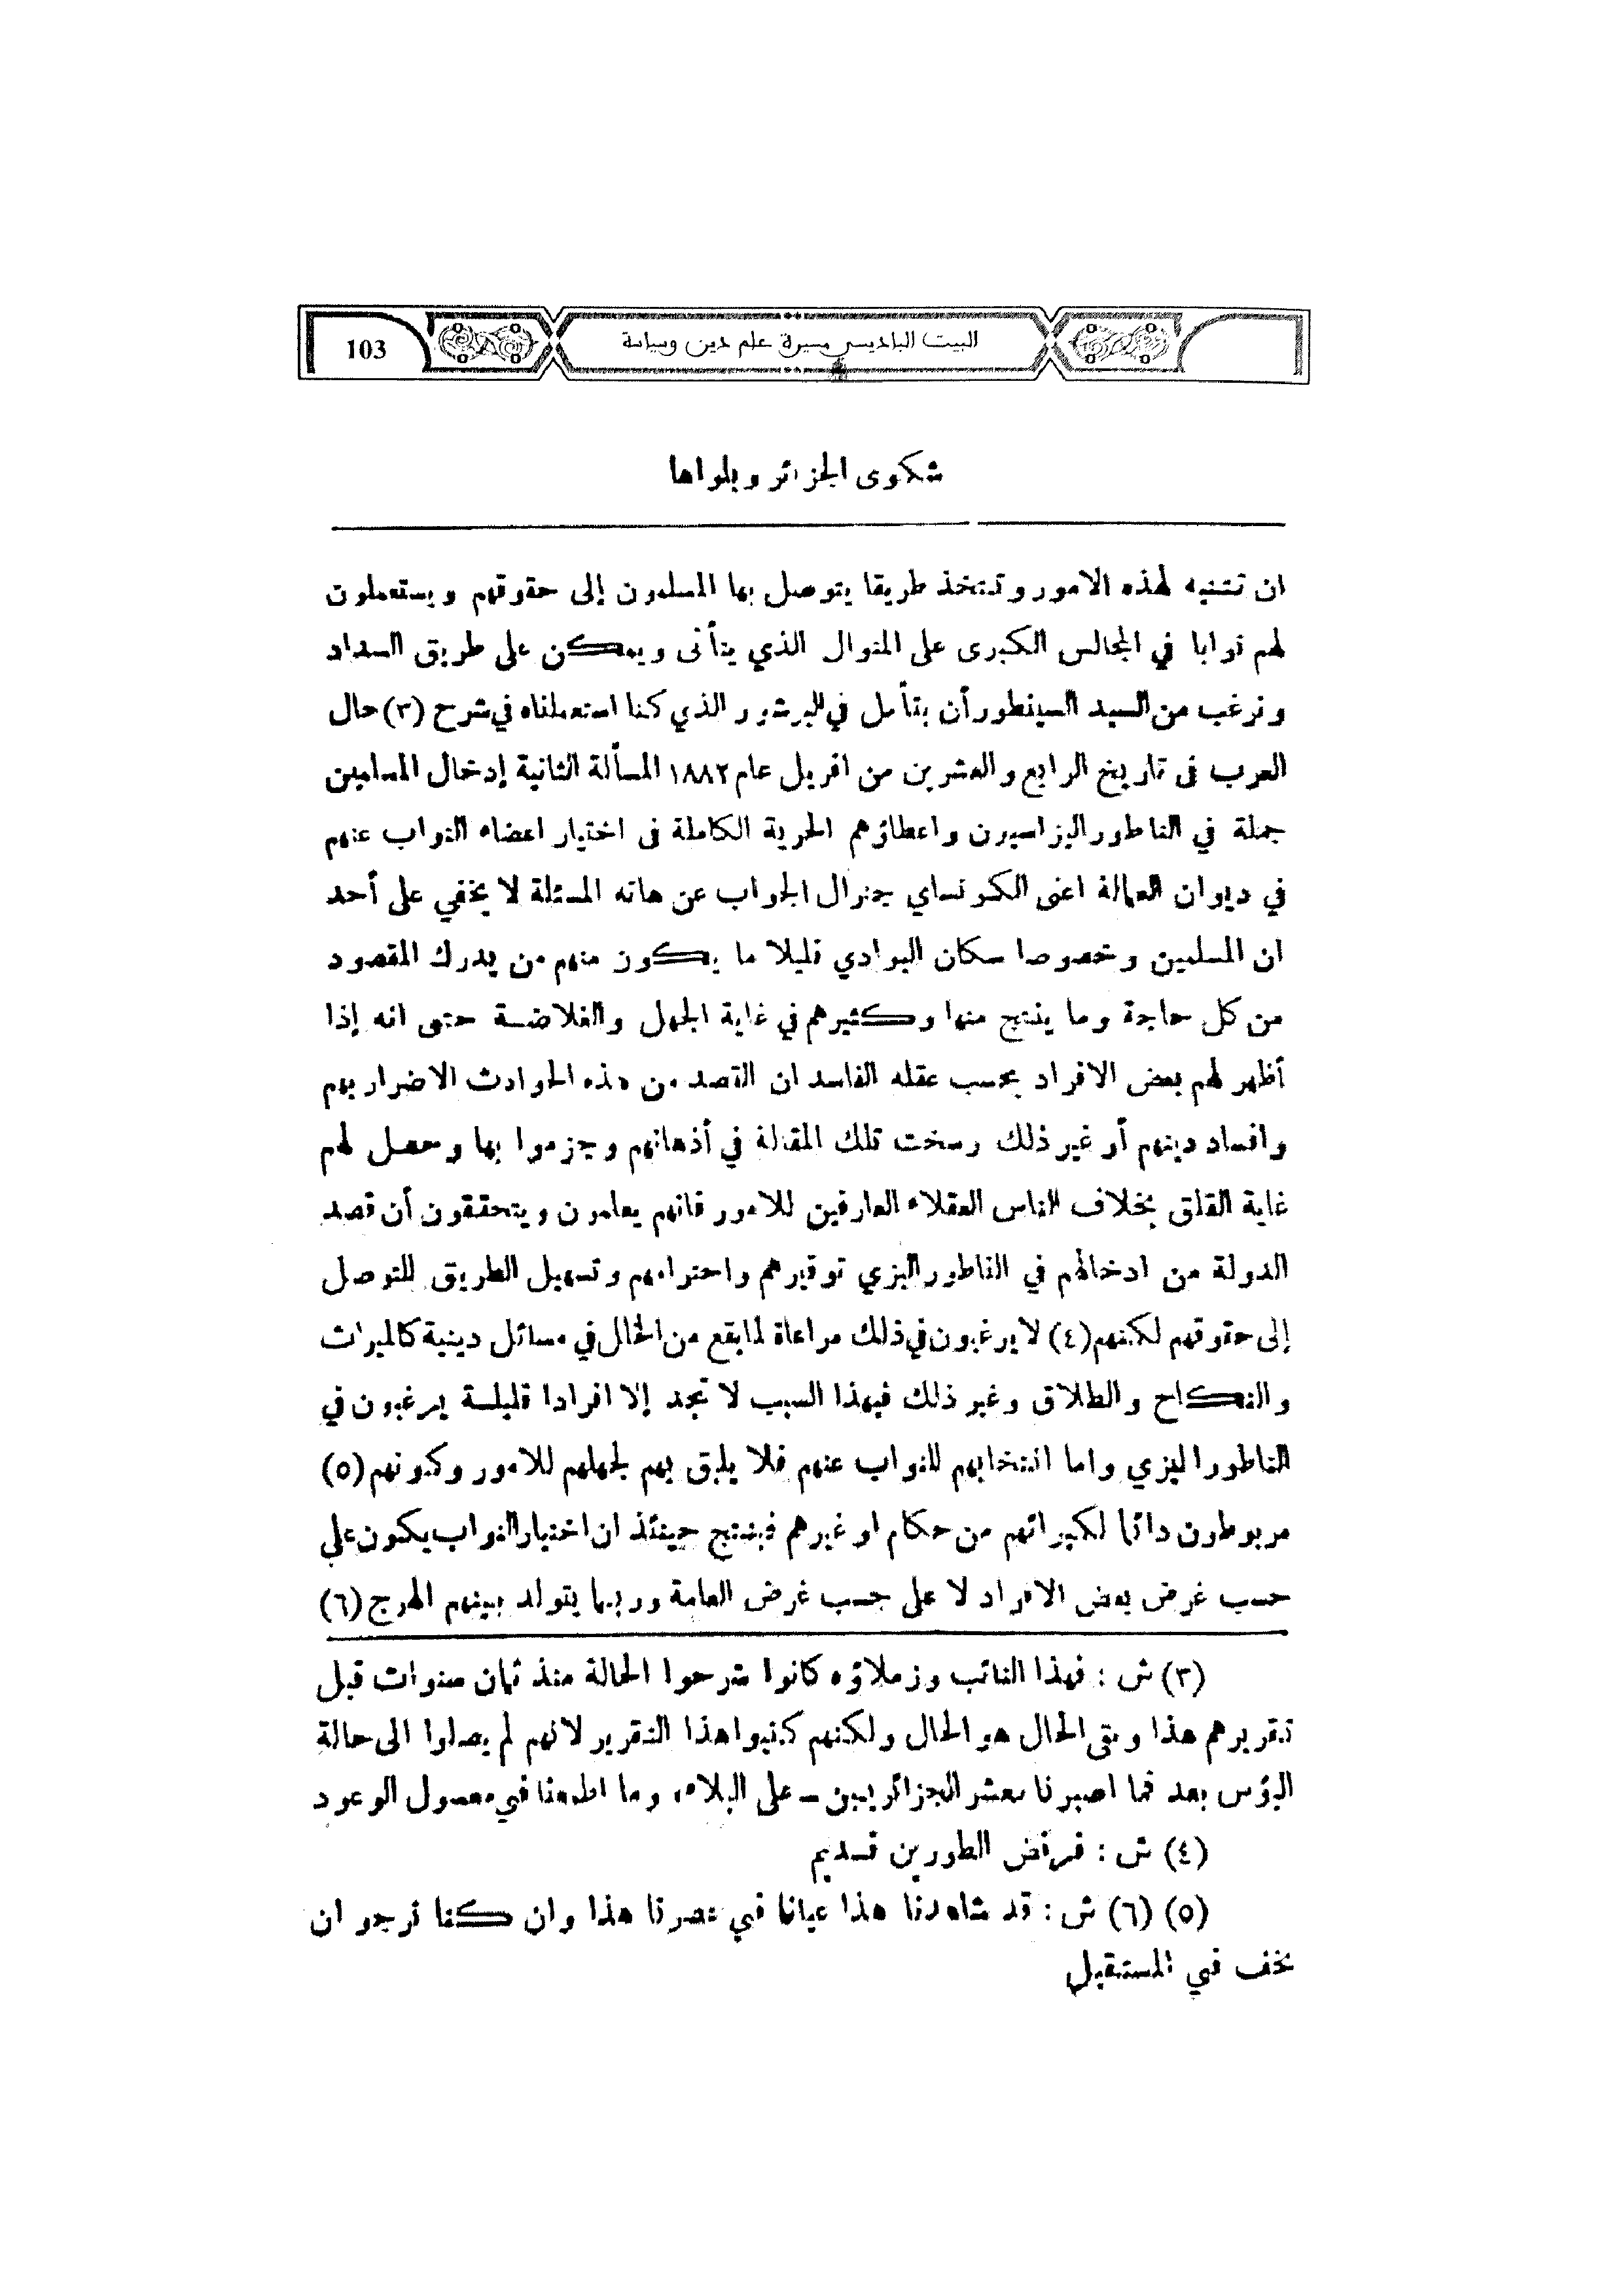 البيت الباديسي مسيرة علم دين وسياسة
103
شكوى الجزائر وبلواها
ان تتنبه لهذه الامور وتتخذ طريقا يتوصل بها المسلمون إلى حقوقهم ويستعملون
لهم نوابا في المجالس الكبرى على المنوال الذي يتأتى ويمكن على طريق السداد
ونرغب من السيد السينطور أن يتأمل في البرشور الذي كنا استعملناه في شرح (٣) حال
العرب فى تاريخ الرابع والعشرين من افريل عام ١٨٨٢ المسألة الثانية إدخال المسلمين
جملة في الناطوراليزاسيون واعطاؤهم الحرية الكاملة فى اختيار اعضاء النواب عنهم
في ديوان العمالة اعنى الكونساي جنرال الجواب عن هاته المسئلة لا يخفي على أحد
ان المسلمين وخصوصا سكان البوادي قليلا ما يكون منهم من يدرك المقصود
من كل حاجة وما ينتج منها وكثيرهم في غاية الجهل والغلاضة حتى انه إذا
أظهر لهم بعض الافراد بحسب عقله الفاسد ان القصد من هذه الحوادث الاضرار بهم
وافساد دينهم أو غير ذلك رسخت تلك المقالة في أذهانهم وجزموا بها وحصل لهم
غاية القلق بخلاف الناس العقلاء العارفين للامور فانهم يعلمون ويتحققون أن قصد
الدولة من ادخالهم في الناطوراليزي توقيرهم واحترامهم وتسهيل الطريق للتوصل
إلى حقوقهم لكنهم (٤) لا يرغبون في ذلك مراعاة لما يقع من الخال في مسائل دينية كالميراث
والنكاح والطلاق وغير ذلك فبهذا السبب لا تجد إلا افرادا قليلة يرغبون في
الناطوراليزي واما انتخابهم للنواب عنهم فلا يليق بهم لجهلهم للامور وكونهم (٥)
مربوطون دائما لكبرائهم من حكام او غيرهم فينتج حينئذ ان اختيار النواب يكون على
حسب غرض بعض الافراد لا على حسب غرض العامة وربما يتولد بينهم الهرج (٦)
(٣) ش : فهذا النائب وزملاؤه كانوا شرحوا الحالة منذ ثمان سنوات قبل
تقريرهم هذا وبقى الحال هو الحال ولكنهم كتبوا هذا التقرير لانهم لم يصلوا الى حالة
البؤس بعد فما اصبرنا معشر الجزائريين – على البلاء، وما اطمعنا في معسول الوعود
(٤) ش : فرفض الطورين قديم
(٥) (٦) ش : قد شاهدنا هذا عيانا في عصرنا هذا وان كنا نرجو ان
يخف في المستقبل